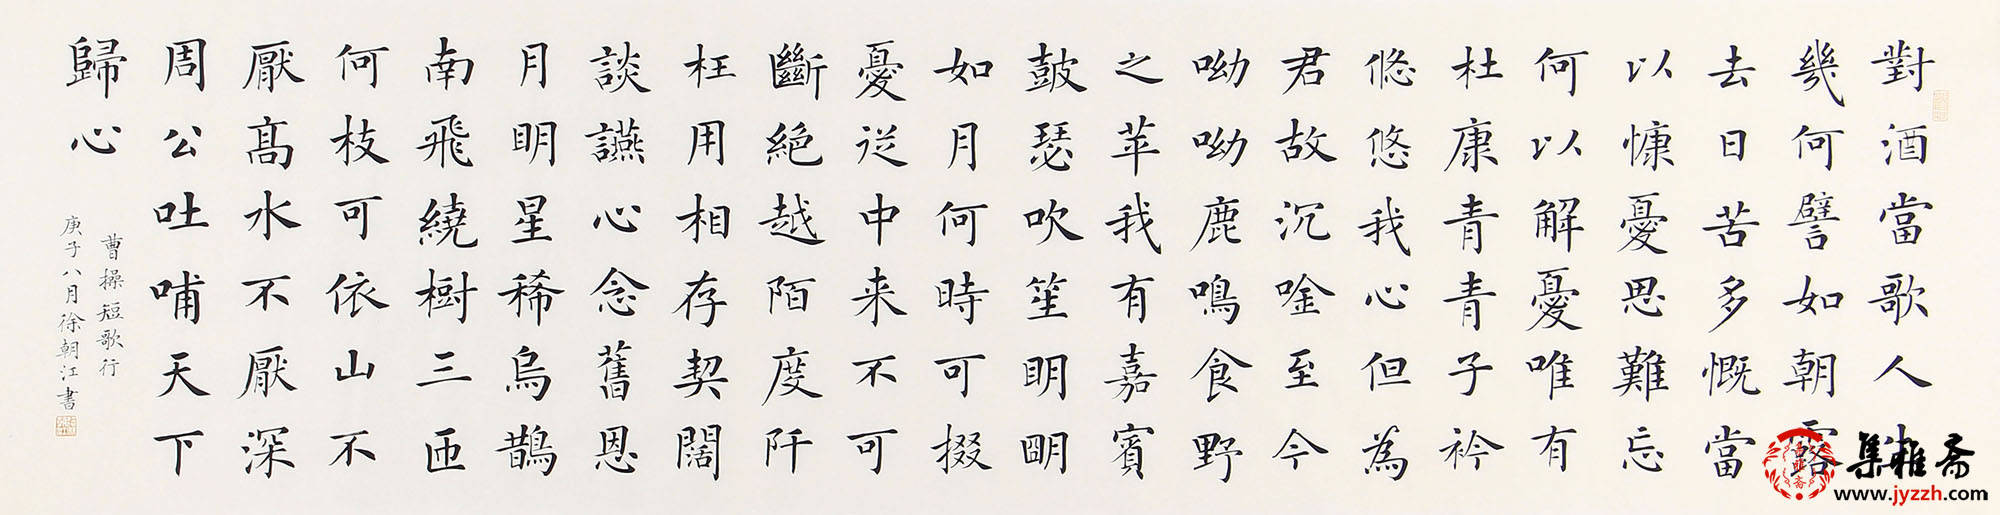 對酒當歌人生
幾何譬如朝露
去日苦多慨當
以慷憂思難忘
何以解憂唯有
杜康青青子衿
悠悠我心但為
君故沉唫至今
呦呦鹿鳴食野
之苹我有嘉賓
皷瑟吹笙明明
如月何時可掇
憂從中来不可
斷絕越陌度阡
枉用相存契闊
談讌心念舊恩
月明星稀烏鵲
南飛繞樹三匝
何枝可依山不
厭髙水不厭深
周公吐哺天下
歸心
曹操短歌行
庚子八月徐朝江書
集雅斋
www.jyzzh.com